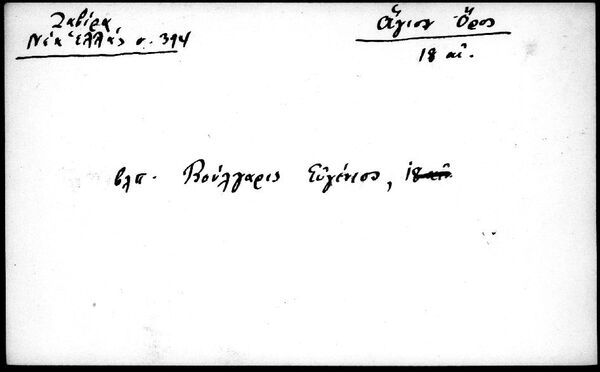 Ζαβίρα
Νέα Ἑλλάς σ. 394
Ἅγιον Ὄρος
18 αἰ.
βλπ. Βούλγαρις Εὐγένιος, 18 αἰ.